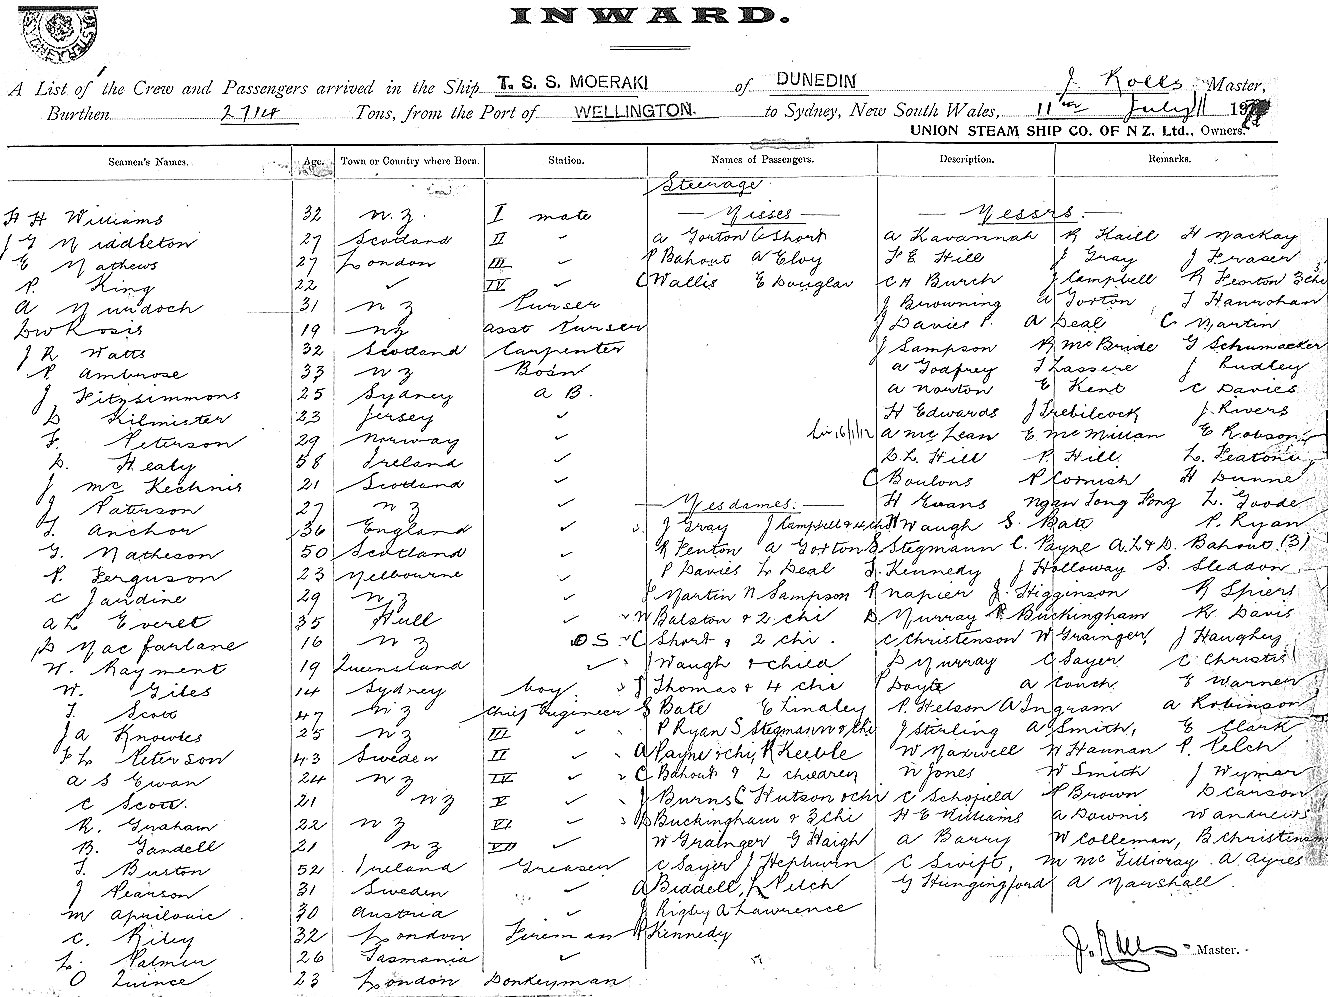 INWARD.
A List of the Crew and Passengers arrived in the Ship T. S. S. MOERAKI of DUNEDIN J. Rolls Master,
Burthen 2714 Tons, from the Port of WELLINGTON. to Sydney, New South Wales, 11th July 11 19
UNION STEAM SHIP CO. OF N Z. Ltd., Owners.
Seamen's Names. Age. Town or Country where Born. Station. Names of Passengers. Description. Remarks.
Steerage
H H Williams 32 N.Z. I mate — Misses — — Messrs. —
J G Middleton 27 Scotland II ✓ A Gorton C Short A Kavannah R Kaill H Mackay
E Mathews 27 London III ✓ P Bahout A Eloy F E Hill J Gray J Fraser
P. King 22 ✓ IV ✓ C Wallis E Douglas C H Burch J Campbell R Fenton 3 chi
A Murdoch 31 N Z Purser J Browning A Gorton T Hanrahan
Rosis 19 NZ asst Purser J Davies P. A Deal C Martin
J R Watts 32 Scotland Carpenter J Sampson R McBride G Schumacker
P. Ambrose 33 N Z Bosin A Godfrey T Lassere J Dudley
J Fitzsimmons 25 Sydney A B. A Norton E Kent C Davies
D Kilmister 23 Jersey ✓ H Edwards J Trebilcock J. Rivers
F. Peterson 29 Norway ✓ A McLean E McMillan E Robson
D. Healy 58 Ireland ✓ D L Hill P. Hill L. Featon
J McKechnis 21 Scotland ✓ C Boulons P Cornish H Dunne
J Paterson 27 N Z ✓ — Mesdames. — H Evans Ngan Tong Pong L. Goode
T. Anchor 36 England ✓ J Gray J Campbell & 4 ch H Waugh S. Bate P. Ryan
G. Matheson 50 Scotland ✓ R Fenton A Gorton S Stegmann C. Payne A. L & D. Bahout (3)
P. Ferguson 23 Melbourne ✓ P Davies L Deal T. Kennedy J Holloway S. Sleddon
C Jardine 29 N Z ✓ J Martin N Sampson P Napier J. Higginson R Spiers
A L Everet 35 Hull ✓ W Balston & 2 chi D Murray R Buckingham R Davis
D Macfarlane 16 N Z O S ✓ C Short & 2 chi. C Christenson W Grainger, J Haughey
W. Rayment 19 Queensland ✓ J Waugh & child D Murray C Sayer C Christie
W. Giles 14 Sydney boy. J Thomas & 4 chi P Doyle A Couch E Warner
T. Scott 47 N Z Chief Engineer S Bate E Lindley P. Helson A Ingram A Robinson
J A Knowles 25 N Z III ✓ P Ryan S Stegmann & chi J Stirling A Smith, E Clark
F L Peterson 43 Sweden II ✓ A Payne & chi, R Keeble W Maxwell W Hannan P. Pelch
A S Ewan 24 N Z IV ✓ C Bahout & 2 children N Jones W Smith J Wymar
C Scott. 21 N Z V ✓ J Burns C Hutson & chi C Schofield P Brown D Carson
R. Graham 22 N Z VI ✓ D Buckingham & 3 chi H E Williams A Downis W Andrews
B. Gandell 21 N Z VII ✓ W Grainger G Haigh A Barry W Colleman, B Christensen
T. Burton 52 Ireland Greaser C Sayer J Hepburn C Swift, M McGillivray A Ayres
J Pearson 31 Sweden ✓ A Biddell, L Pelch G Hungingford A Marshall.
M 30 Austria ✓ J Rigley A Lawrence
C. Riley 32 London Fireman P Kennedy
L. Palmer 26 Tasmania ✓ J. Rolls Master.
O Quince 23 London Donkeyman